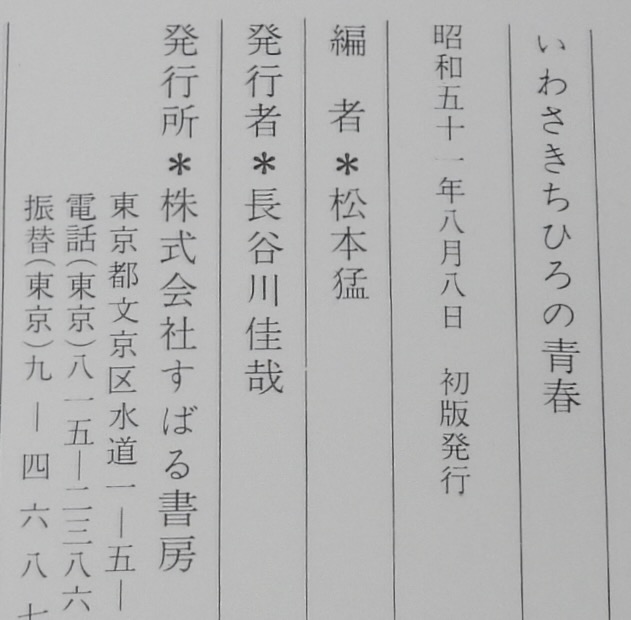 いわさきちひろの青春
昭和五十一年八月八日　初版発行
編　者＊松本猛
発行者＊長谷川佳哉
発行所＊株式会社すばる書房
東京都文京区水道一―五―
電話(東京)八一五―二三八六
振替(東京)九―四六八七